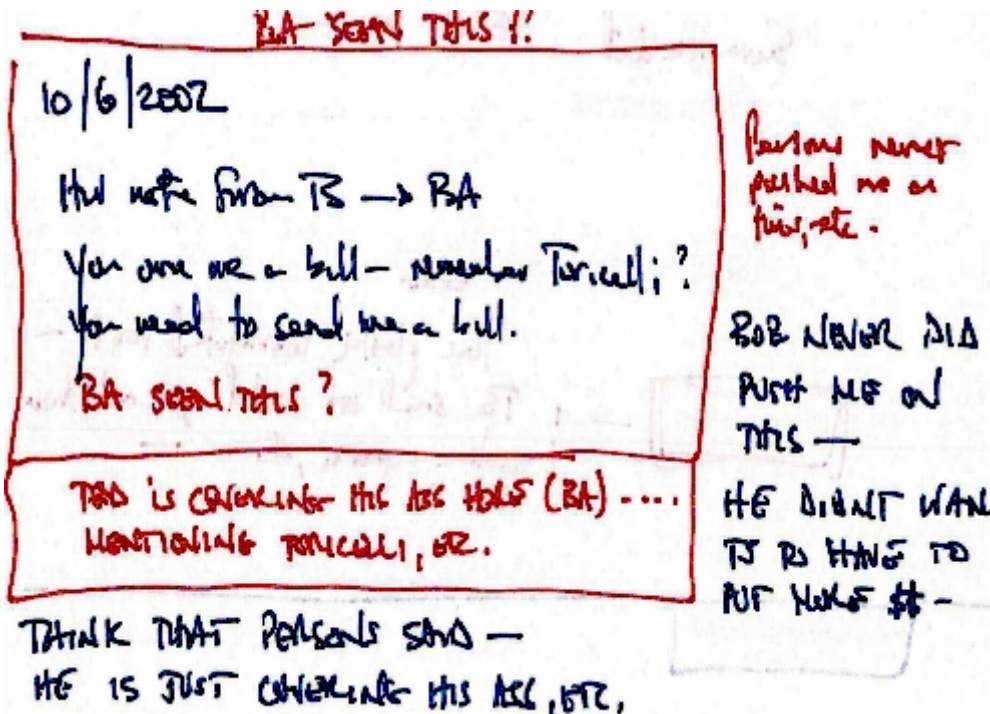 BA SEEN THIS?!
10/6/2002
Hw note from TS → BA
You owe me a bill – remember Toricelli?
You need to send me a bill.
BA SEEN THIS?
TED IS COVERING HIS ASS HERE (BA) ....
MENTIONING TORICELLI, ETC.
THINK THAT PERSONS SAID —
HE IS JUST COVERING HIS ASS, ETC,
Persons never
pushed me on
this, etc.
BOB NEVER DID
PUSH ME ON
THIS —
HE DIDNT WAN
TS TO HAVE TO
PUT MORE $$ –